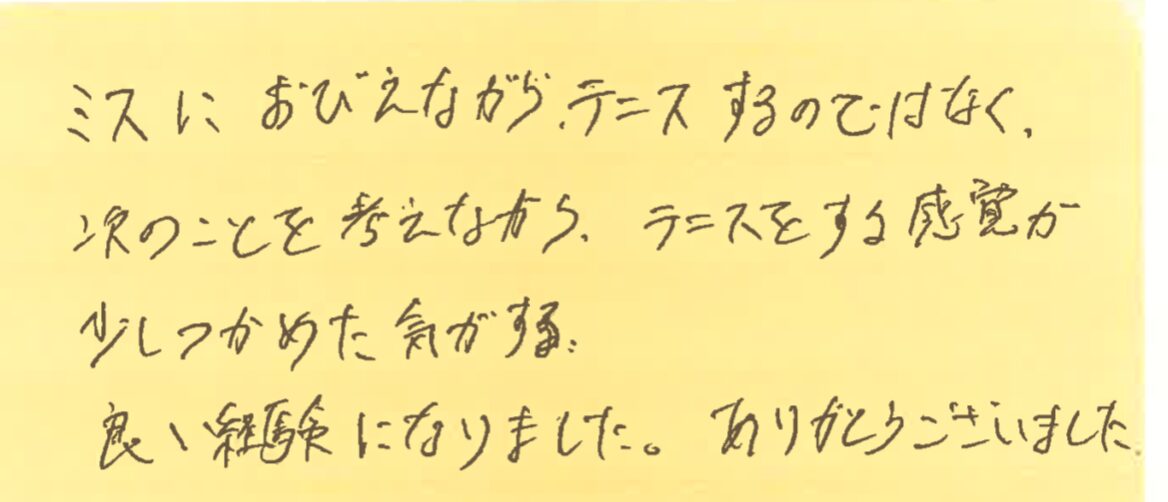 ミスにおびえながら、テニスするのではなく、
次のことを考えながら、テニスをする感覚が
少しつかめた気がする。
良い経験になりました。ありがとうございました。